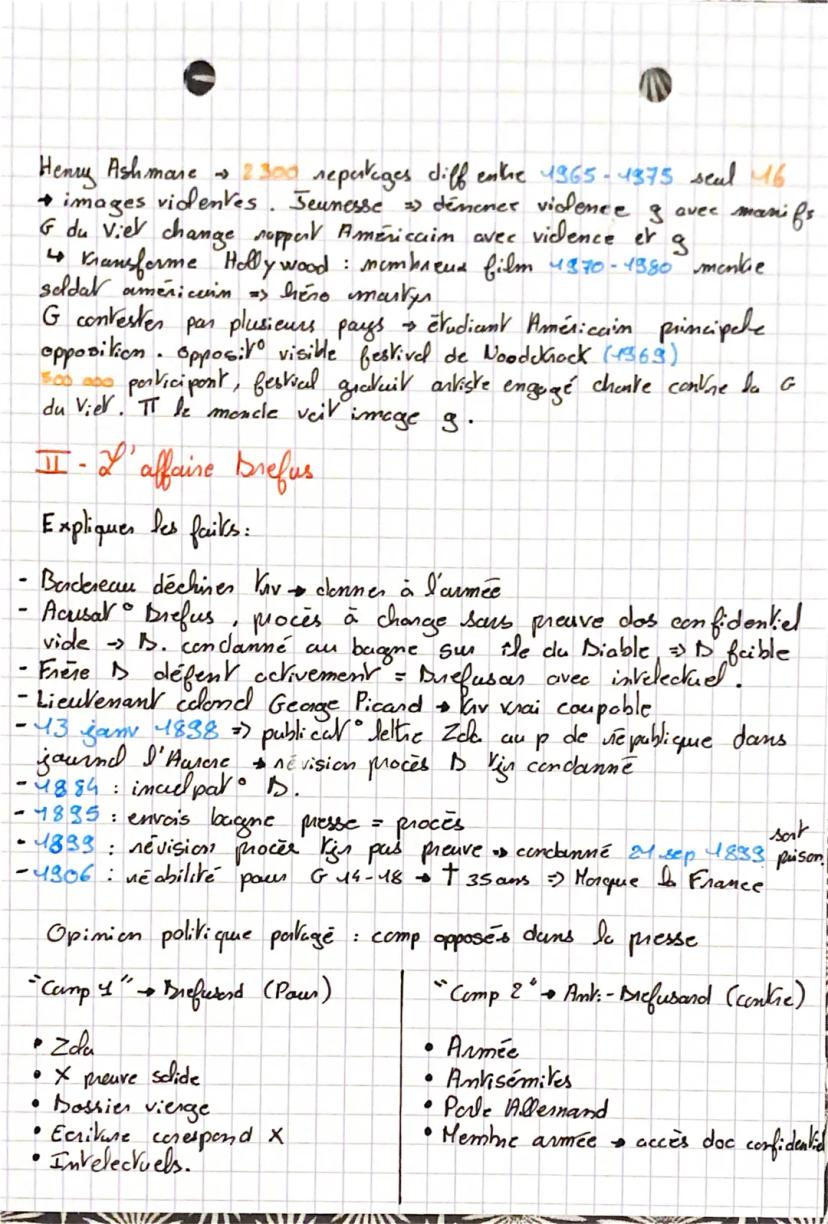 Henry Ashmare → 2 300 reportages diff entre 1965-1975 seul 16
→ images violentes. Jeunesse => dénoncer violence g avec manifs
G du Viet change rapport Américain avec violence et g
↳ transforme Hollywood : nombreux film 1970-1980 montre
soldat américain => héro martyr
G contester par plusieurs pays → étudiant Américain principale
opposition. Opposit° visible festival de Woodstock (1969)
500 000 participant, festival gratuit artiste engagé chante contre la G
du Viet. TT le monde voit image g.
II - L'affaire Drefus
Expliquer les faits:
- Bordereau déchirer → donner à l'armée
- Acusat° Drefus, procès à charge sans preuve dos confidentiel
vide → D. condanné au bagne sur île du Diable => D faible
- Frère D défent activement = Drefusar avec intelectuel.
- Lieutenant colonel George Picard → vrai coupable
- 13 janv 1898 => publicat° lettre Zola au p de république dans
journal l'Aurore → révision procès D tjr condanné
- 1884 : inculpat° D.
- 1895 : envois bagne presse = procès
- 1899 : révision procès tjr pas preuve → condanné 21 sep 1899 sort prison.
- 1906 : réabilité pour G 14-18 → † 35 ans => Morque la France
Opinion politique partagé : camp opposés dans la presse
"Camp 1" → Drefusard (Pour)
• Zola
• X preuve solide
• Dossier vierge
• Ecriture corespond X
• Intelectuels.
"Camp 2" → Anti-Drefusard (contre)
• Armée
• Antisémites
• Parle Allemand
• Membre armée → accès doc confidentiel